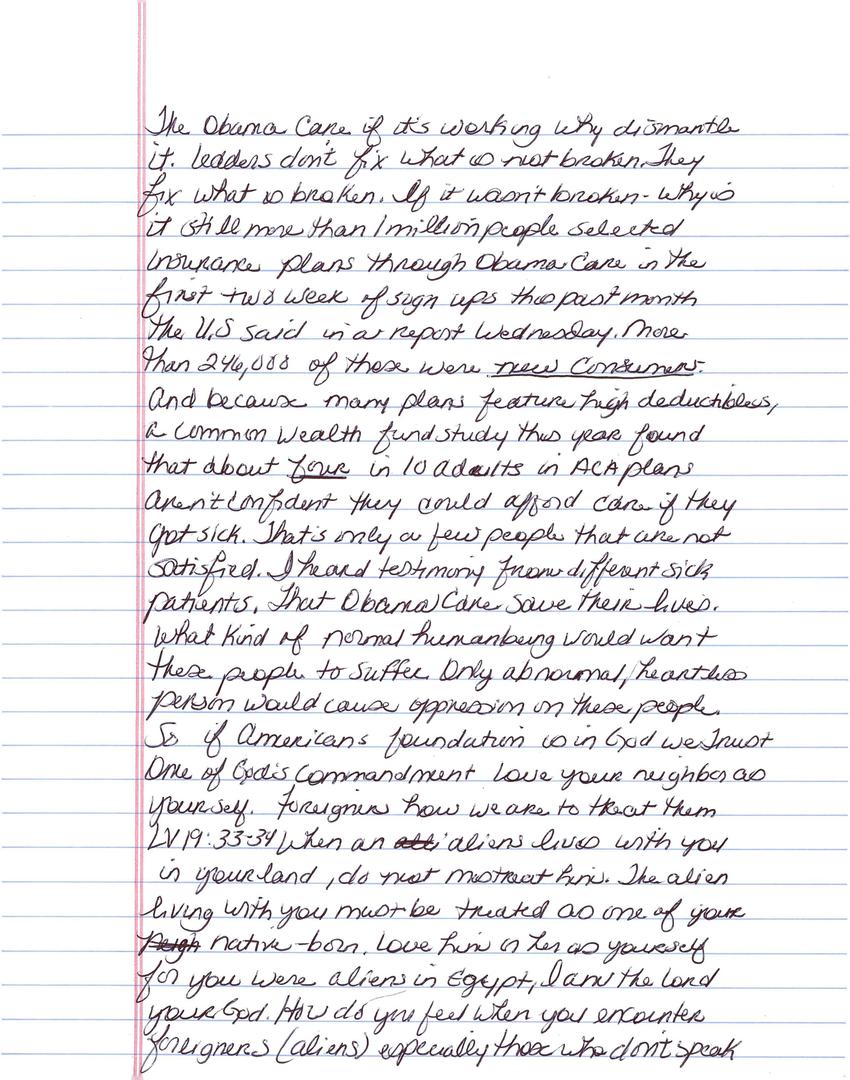 The Obama Care if it's working why dismantle
it. leaders don't fix what is not broken. They
fix what is broken. If it wasn't broken - why is
it still more than 1 million people selected
insurance plans through Obama Care in the
first two week of sign ups this past month
the U.S said in a report Wednesday. More
than 246,000 of those were new Consumers.
And because many plans feature high deductibless,
a common Wealth fund study this year found
that about four in 10 adults in ACA plans
aren't confident they could afford care if they
got sick. That's only a few people that are not
satisfied. I heard testimony from different sick
patients. That Obama Care save their lives.
What Kind of normal humanbeing would want
these people to suffer. Only abnormal, heartless
person would cause oppression on these people.
So if Americans foundation is in God we Trust
One of God's Commandment Love your neighbor as
yourself. Foreigners how we are to treat them
LV 19:33-34 When an aliens lives with you
in your land, do not mistreat him. The alien
living with you must be treated as one of your
native-born. Love him or her as yourself
for you were aliens in Egypt, I am the Lord
your God. How do you feel when you encounter
foreigners (aliens) especially those who don't speak